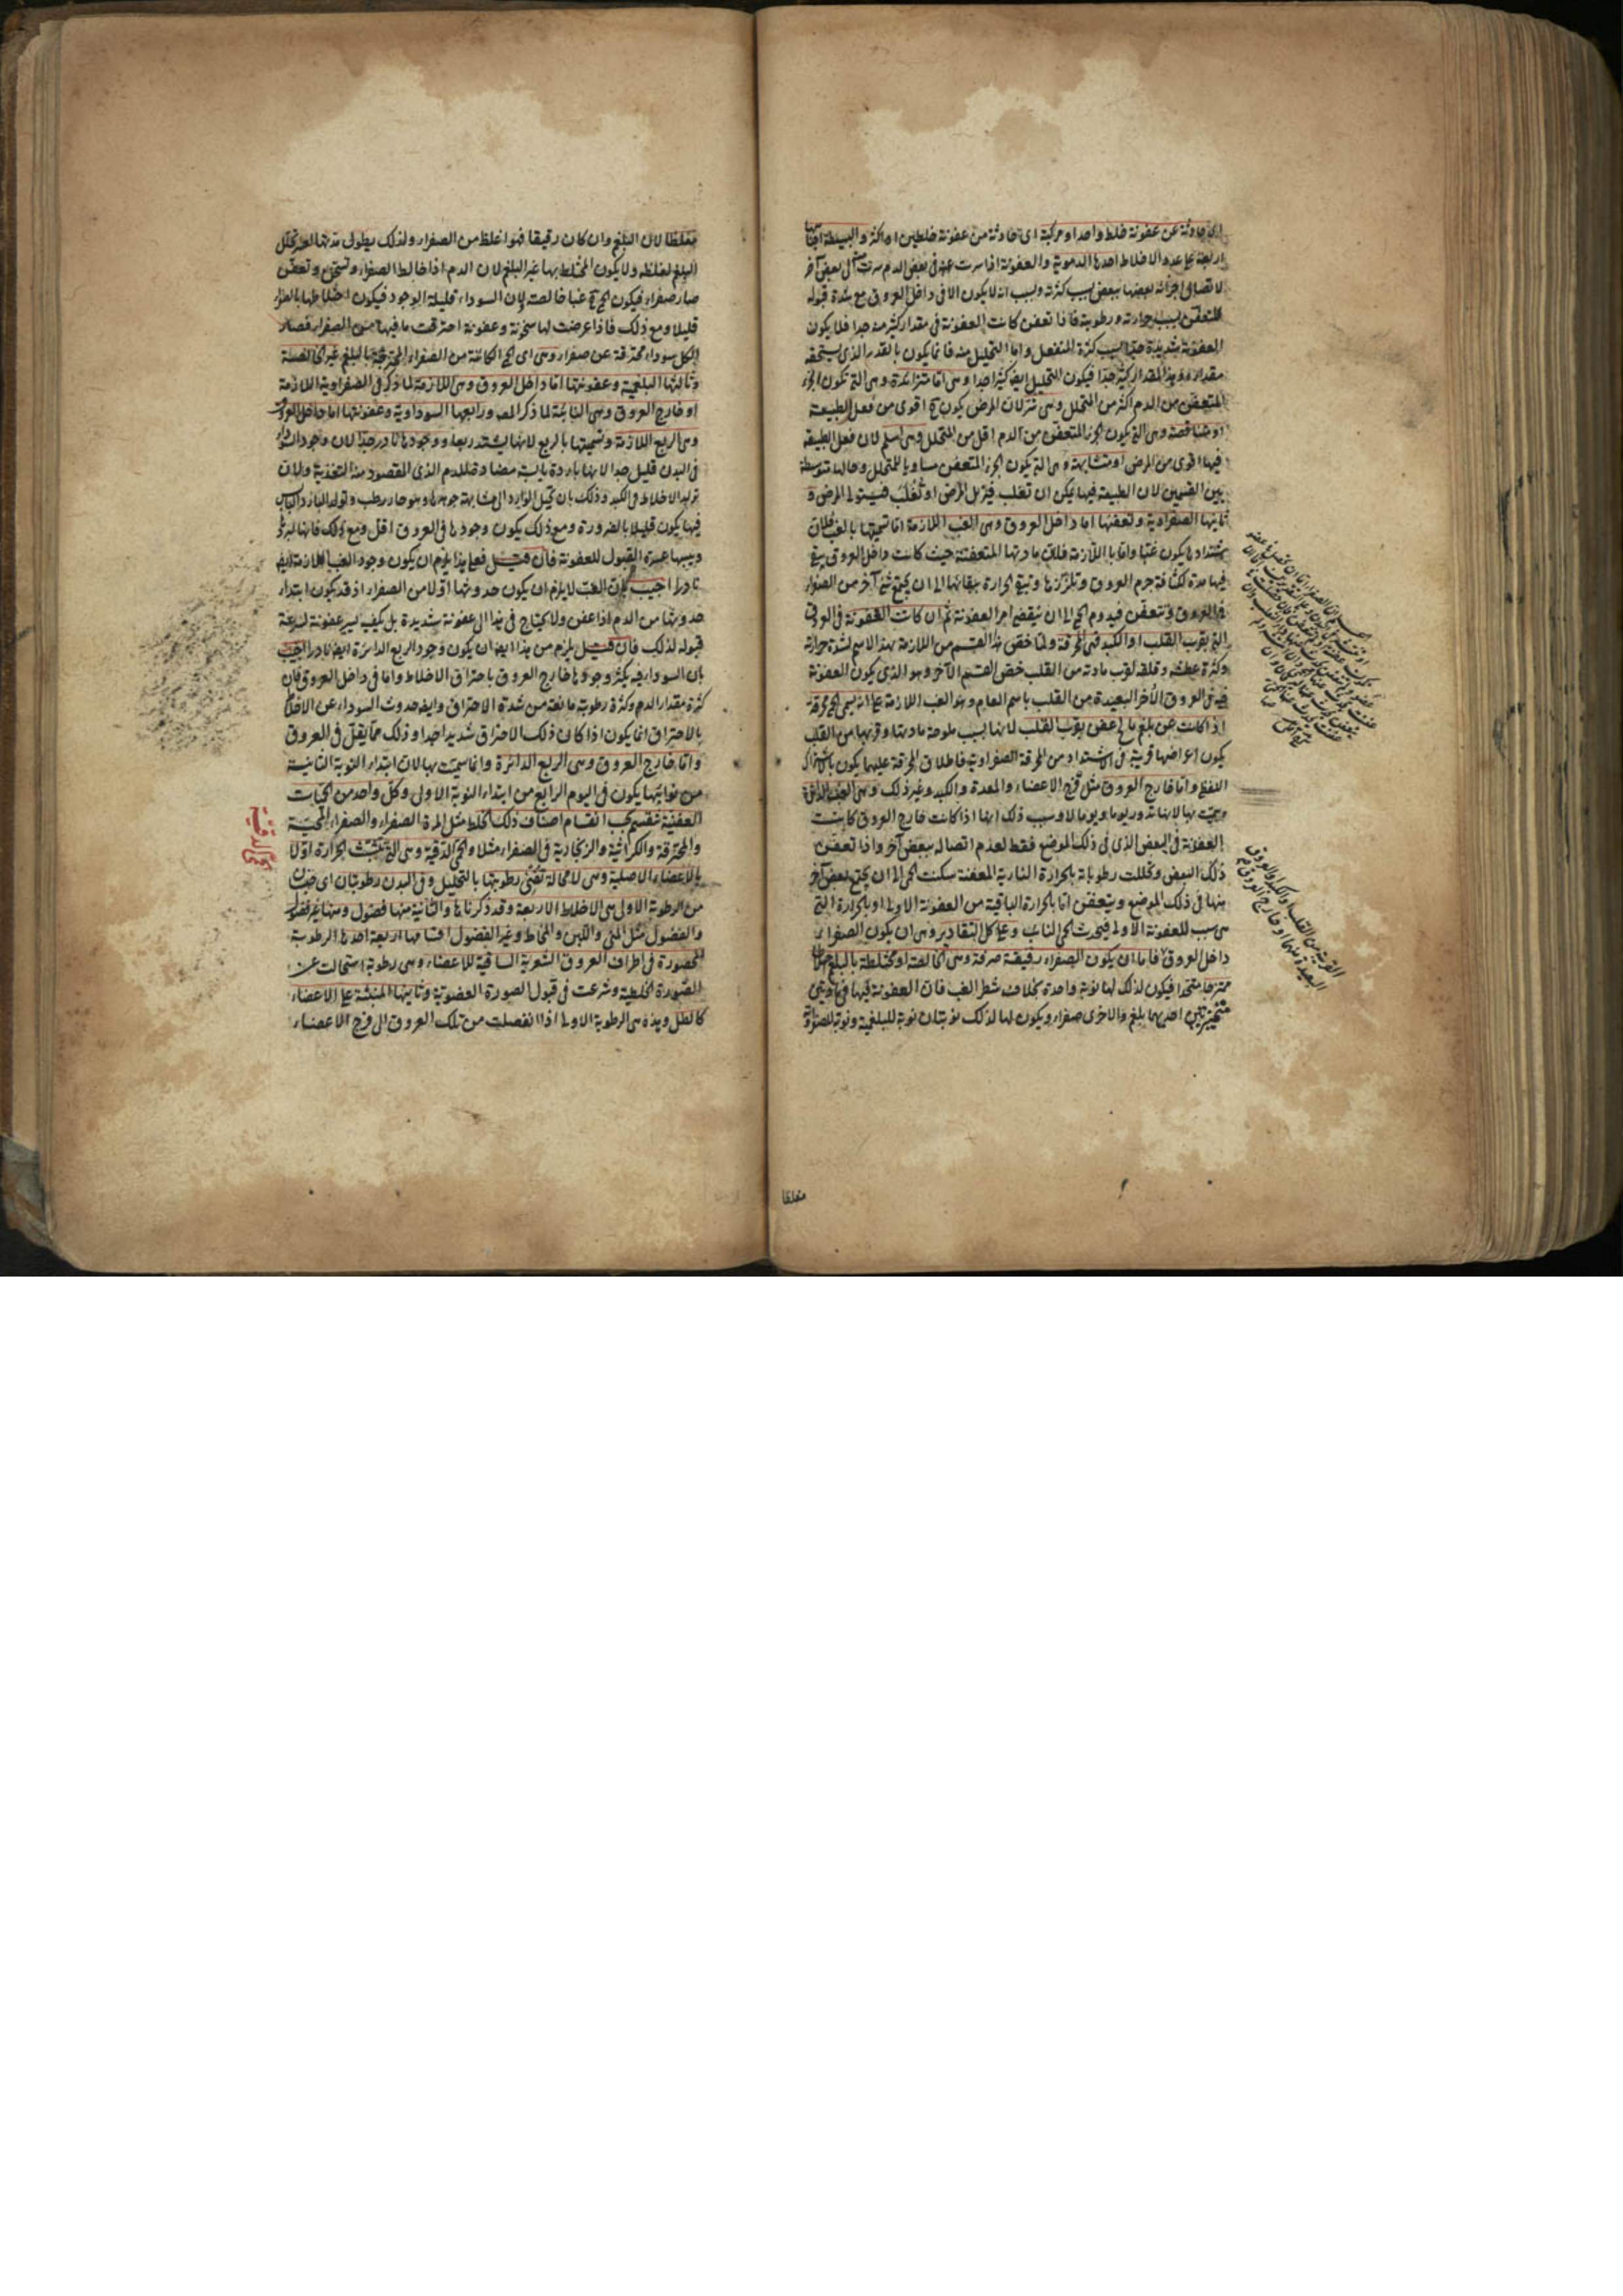 اى حادثة عن عفونة خلط واحد او مركبة اى حادثة من عفونة خلطين او اكثر والبسيطة اجناسها
اربعة على عدد الاخلاط احدها الدموية والعفونة اذا سرت عنه فى بعض الدم سرت الى بعض آخر
لاتصال اجزائه بعضها ببعض بسبب كثرته وبسبب انه لا يكون الا فى داخل العروق مع شدة قبوله
للتعفن بسبب حرارته ورطوبته فاذا تعفن كانت العفونة فى مقدار كثير منه جدا فلا يكون
العفونة شديدة جدا بسبب كثرة المنفعل واما التحليل منه فانما يكون بالقدر الذى يستحقه
مقداره وهذا المقدار كثير جدا فيكون التحليل ايضا كثيرا جدا وهى اما متزائدة وهى التى تكون الجزء
المتعفن من الدم اكثر من المتحلل وهى شر لان المرض يكون ح اقوى من فعل الطبيعة
او متناقصة وهى التى يكون الجزء المتعفن من الدم اقل من المتحلل وهى اسلم لان فعل الطبيعة
فيها اقوى من المرض او متشابهة وهى التى يكون الجزء المتعفن مساويا للمتحلل وحالها متوسطة
بين القسمين لان الطبيعة فيها يمكن ان تغلب فيزيل المرض او تُغلَب فيستولى المرض و
ثانيها الصفراوية وتعفنها اما داخل العروق وهى الغب اللازمة اما تسميتها بالغب فلان
اشتدادها يكون غبا واما باللازمة فلان مادتها المتعفنة حيث كانت داخل العروق يبقى
فيها مدة لكثافة جرم العروق وتلززها وتبقى الحرارة ببقائها الى ان يجتمع شئ آخر من الصفراء
فى العروق وتتعفن فيدوم الحمى الى ان ينقضى امر العفونة ثم ان كانت العفونة فى العروق
التى بقرب القلب او الكبد فهى المحرقة وانما خص هذا القسم من اللازمة بهذا الاسم لشدة حرارته
وكثرة عطشه وقلقه لقرب مادته من القلب خص القسم الآخر وهو الذى يكون العفونة
فيه فى العروق الأخر البعيدة من القلب باسم العام وهو الغب اللازمة على انه يسمى الحمى محرقة
اذا كانت عن بلغم مالح عفن بقرب القلب لانها بسبب ملوحة مادتها وقربها من القلب
يكون اعراضها قريبة فى الاشتداد من المحرقة الصفراوية فاطلاق المحرقة عليهما يكون باشتراك
اللفظ واما خارج العروق مثل فرج الاعضاء والمعدة والكبد وغير ذلك وهى الغب الدائرة
وسميت بها لانها تدور يوما ويوما لا وسبب ذلك انها اذا كانت خارج العروق كانت
العفونة فى البعض الذى فى ذلك الموضع فقط لعدم اتصاله ببعض آخر واذا تعفن
ذلك البعض وتحللت رطوباته بالحرارة النارية المعفنة سكنت الحمى الى ان يجتمع بعض آخر
منها فى ذلك الموضع ويتعفن اما بالحرارة الباقية من العفونة الاولى او بالحرارة التى
هى سبب للعفونة الاولى فيحدث الحمى النائبة وعلى كل التقادير وهى ان يكون الصفراء
داخل العروق فاما ان يكون الصفراء رقيقة صرفة وهى الخالصة او مختلطة بالبلغم اختلاطا
ممتزجا متحدا فيكون لذلك لها نوبة واحدة بخلاف شطر الغب فان العفونة فيها فى مادتين
متميزتين احدهما بلغم والاخرى صفراء ويكون لها لذلك نوبتان نوبة للبلغمية ونوبة للصفراوية
القريبة من القلب او الكبد والعروق
البعيدة منهما او خارج العروق
مغلظا
مغلظا لان البلغم وان كان رقيقا فهو اغلظ من الصفراء ولذلك يطول مدتها لعسر تحلل
البلغم لغلظه ولا يكون المختلط بها غير البلغم لان الدم اذا خالط الصفراء وتسخن وتعفن
صار صفراء فيكون الحمى ح غبا خالصة ولان السوداء قليلة الوجود فيكون اختلاطها بالصفراء
قليلا ومع ذلك فاذا عرضت لها سخونة وعفونة احترقت ما فيها من الصفراء فصار
الكل سوداء محترقة عن صفراء وهى اى الحمى الكائنة من الصفراء الممتزجة بالبلغم غير الخالصة
وثالثها البلغمية وعفونتها اما داخل العروق وهى اللازمة لما ذكر فى الصفراوية اللازمة
او خارج العروق وهى النائبة لما ذكر المص ورابعها السوداوية وعفونتها اما داخل العروق
وهى الربع اللازمة وتسميتها بالربع لانها يشتد ربعا ووجودها نادر جدا لان وجود السوداء
فى البدن قليل جدا لانها باردة يابسة مضادة للدم الذى المقصود منه التغذية ولان
تولد الاخلاط فى الكبد وذلك بان تحيل الوارد الى مشابهة جوهرها وهو حار رطب وتولد البارد اليابس
فيها يكون قليلا بالضرورة ومع ذلك يكون وجودها فى العروق اقل ومع ذلك فانها لبردها
ويبسها عسرة القبول للعفونة فان قيل فعلى هذا يلزم ان يكون وجود الغب اللازمة ايضا
نادرا اجيب بان الغب لا يلزم ان يكون حدوثها اولا من الصفراء اذ قد يكون ابتداء
حدوثها من الدم اذا عفن ولا يحتاج فى هذا الى عفونة شديدة بل يكفيه يسير عفونة لسرعة
قبوله لذلك فان قيل يلزم من هذا ايضا ان يكون وجود الربع الدائرة ايضا نادرا اجيب
بان السوداء قد يكثر وجودها خارج العروق باحتراق الاخلاط واما فى داخل العروق فان
كثرة مقدار الدم وكثرة رطوبته مانعة من شدة الاحتراق وايضا حدوث السوداء عن الاخلاط
بالاحتراق انما يكون اذا كان ذلك الاحتراق شديدا جدا وذلك مما يقل فى العروق
واما خارج العروق وهى الربع الدائرة وانما سميت بها لان ابتداء النوبة الثانية
من نوابتها يكون فى اليوم الرابع من ابتداء النوبة الاولى وكل واحد من الحميات
العفنية تنقسم بحسب انقسام اصناف ذلك الخلط مثل المرة الصفراء والصفراء المحية
والمحترقة والكراثية والزنجارية فى الصفراء مثلا والحمى الدقية وهى التى تتشبث الحرارة اولا
بالاعضاء الاصلية وهى لا محالة تفنى رطوبتها بالتحليل وفى البدن رطوبتان اى جنسان
من الرطوبة الاولى هى الاخلاط الاربعة وقد ذكرناها والثانية منها فضول ومنها غير فضول
والفضول مثل المنى واللبن والمخاط وغير الفضول اقسامها اربعة احدها الرطوبة
المحصورة فى اطراف العروق الشعرية الساقية للاعضاء وهى رطوبة استحالت عن
الصورة الخلطية وشرعت فى قبول الصورة العضوية وثانيها المنبثة على الاعضاء
كالطل وهذه هى الرطوبة الاولى اذا انفصلت من تلك العروق الى فرج الاعضاء